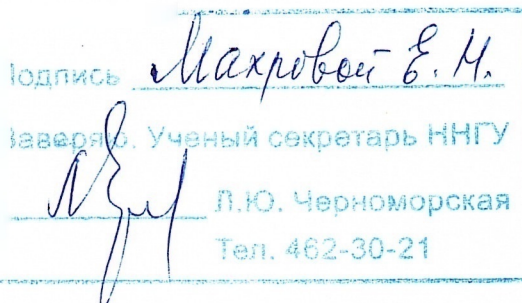 Подпись Махровой Е. Н.
Заверяю. Ученый секретарь ННГУ
Л.Ю. Черноморская
Тел. 462-30-21